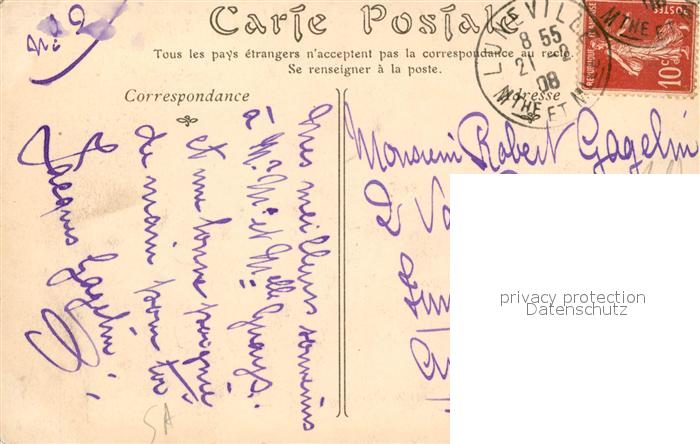 No 2
Carte Postale
Tous les pays étrangers n'acceptent pas la correspondance au recto.
Se renseigner à la poste.
Correspondance
Adresse
LUNEVILLE
8 55
21
08
MTHE ET M
MTHE E
REPUBLIQUE
10c
Mes meilleurs souvenirs
à Mr Me et Melle
et une bonne poignée
de main pour toi
Jacques Gagelin
Monsieur Robert Gagelin
2
privacy protection
Datenschutz
SA